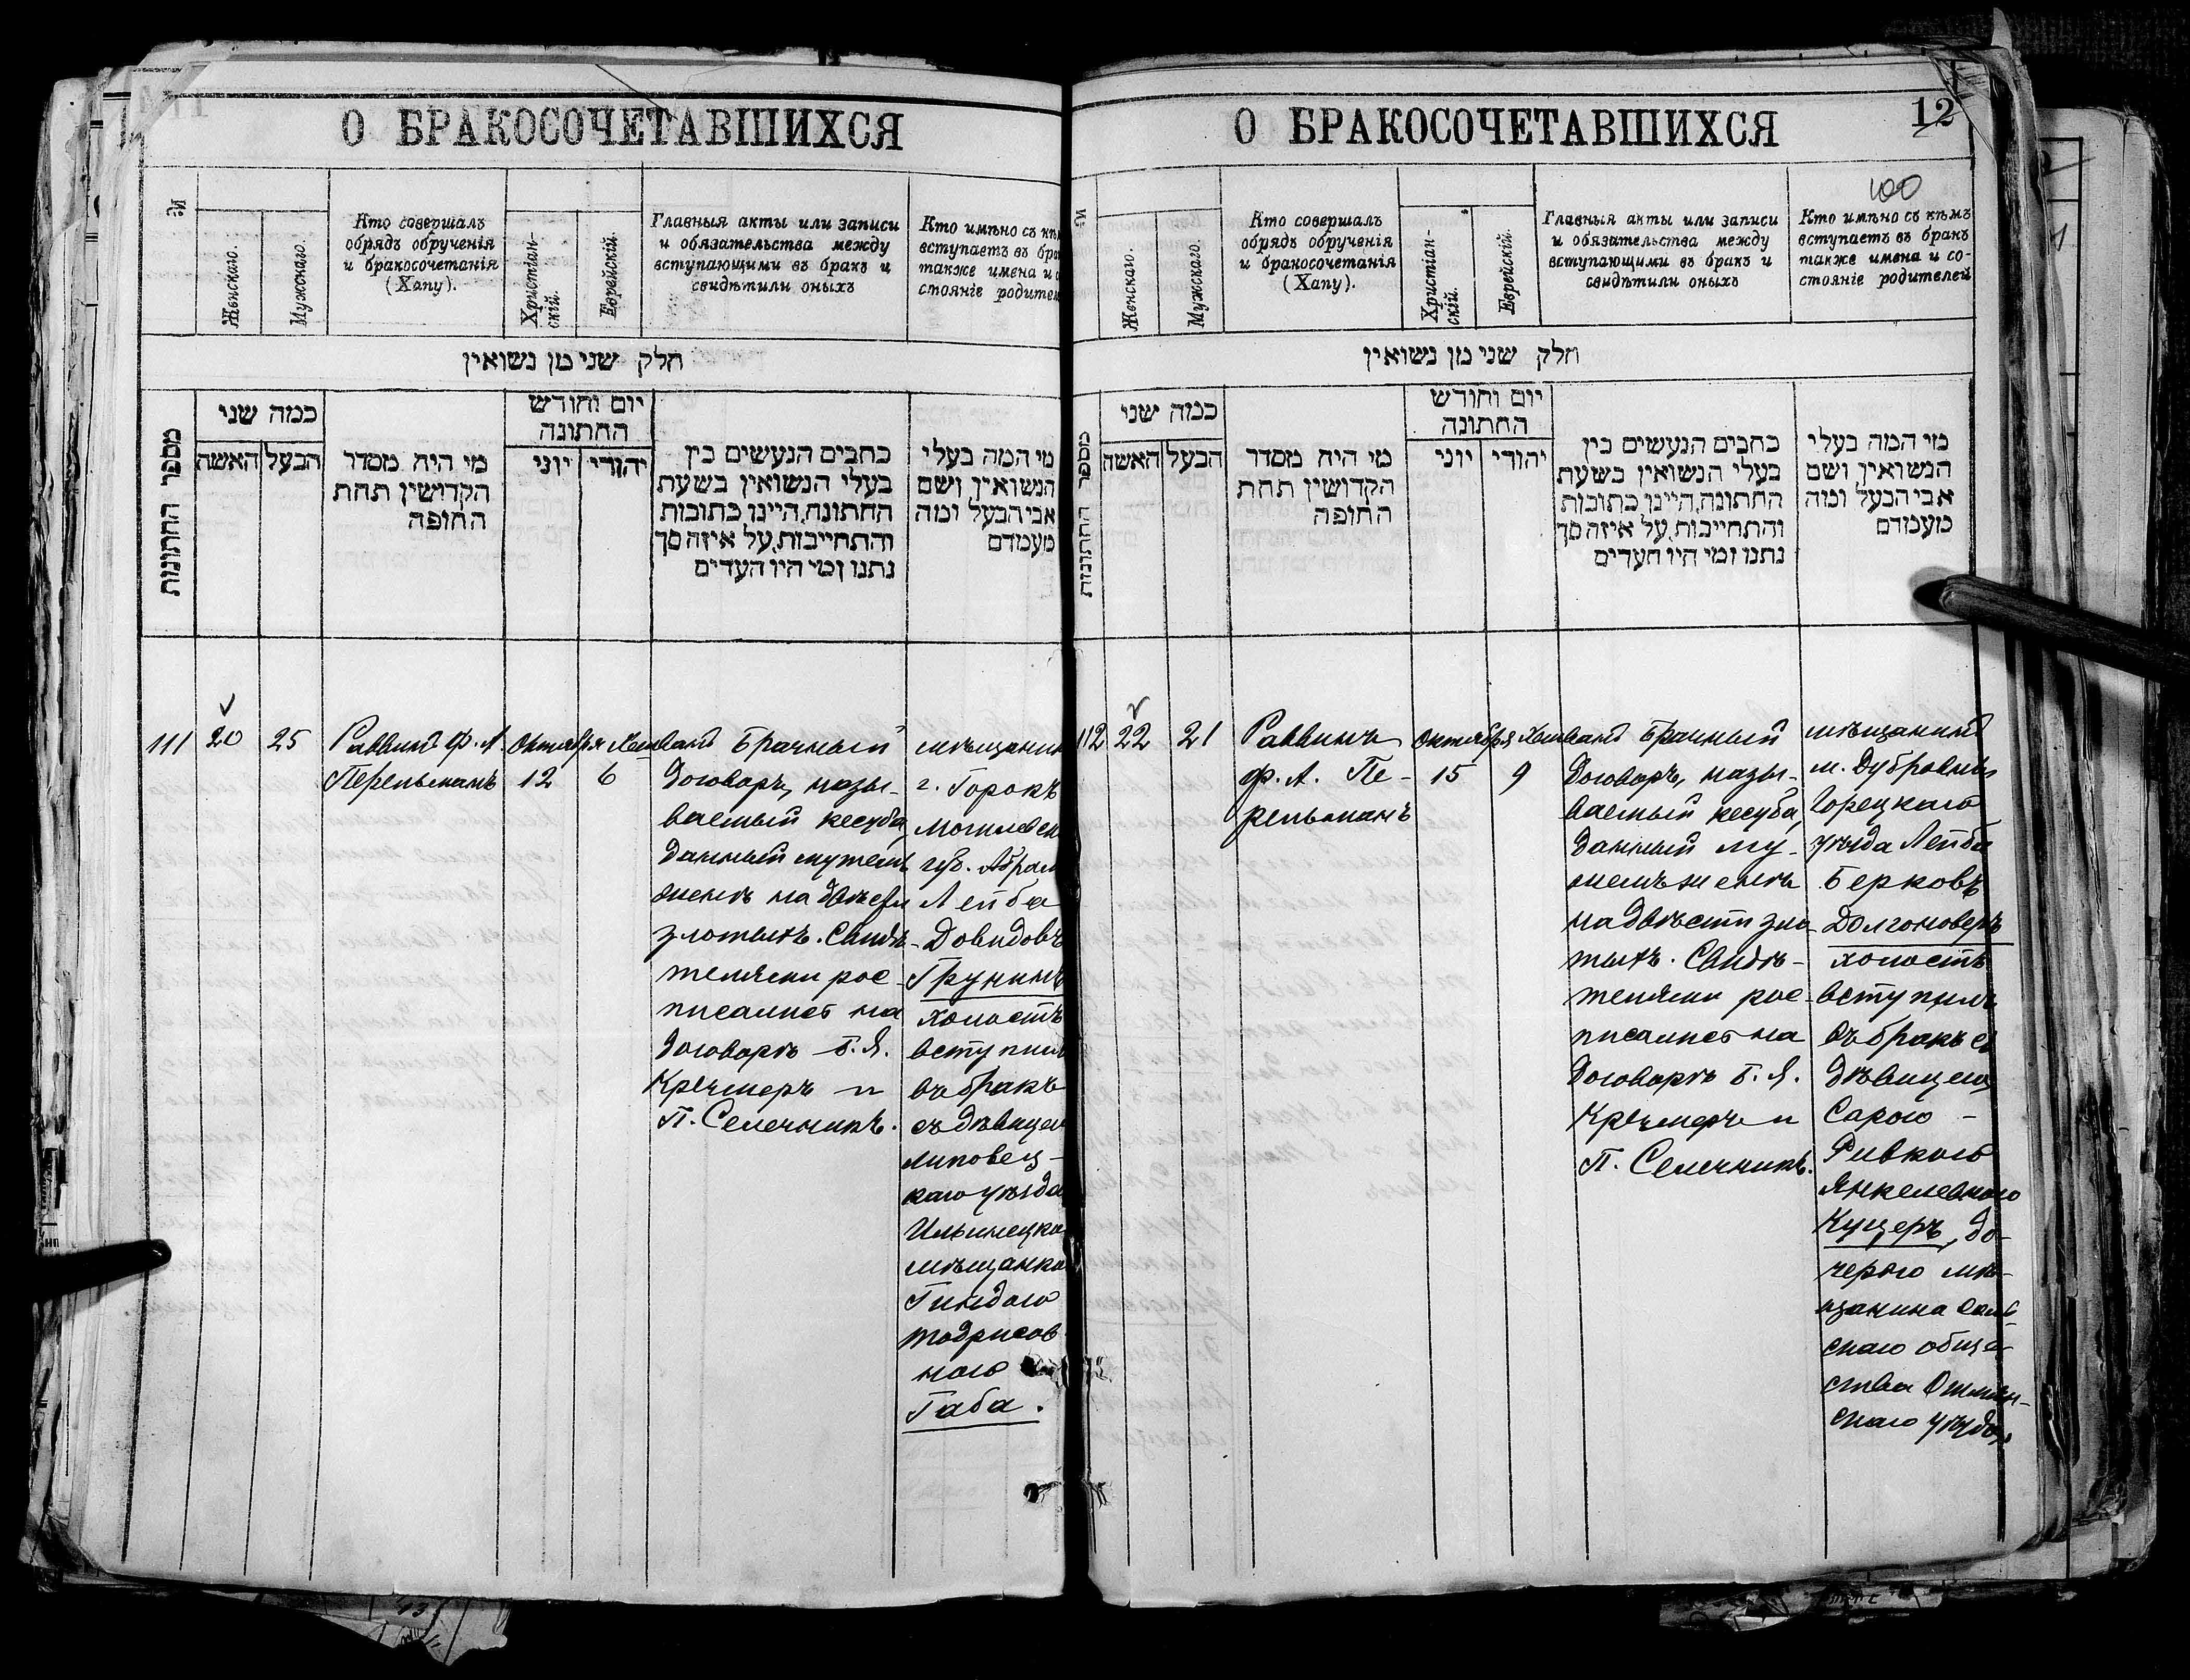 О БРАКОСОЧЕТАВШИХСЯ
№
Женскаго.
Мужскаго.
Кто совершалъ
обрядъ обрученія
и бракосочетанія
(Хапу).
Христіан-
скій.
Еврейскій.
Главныя акты или записи
и обязательства между
вступающими въ бракъ и
свидѣтили оныхъ
Кто имѣно съ
вступаетъ въ
также имена и
стояніе
חלק שני מן נשואין
מספר החתונות
כמה שני
האשה
הבעל
מי היה מסדר
הקדושין תחת
החופה
יום וחודש
החתונה
יוני
יהודי
כתבים הנעשים בין
בעלי הנשואין בשעת
החתונה, היינו כתובות
והתחייבות, על איזה סך
נתנו ומי היו העדים
מי המה בעלי
הנשואין ושם
אבי הבעל ומה
מעמדם
111
20
25
Раввинъ Ф. А.
Перельманъ
Октября
12
Хешванъ
6
Брачный
договоръ, назы-
ваемый кесуба,
данный мужемъ
женѣ на двѣсти
злотыхъ. Свидѣ-
телями рос-
писались на
договорѣ Б. Я.
Кремеръ и
П. Селечникъ.
мѣщанинъ
г. Горокъ
губ. Абрамъ
Лейба
Довидовъ
Грунинъ
холостъ
вступилъ
въ бракъ
съ дѣвицею
Липовец-
каго уѣзда
Гиндою
Тодрисов
ною
Габа.
О БРАКОСОЧЕТАВШИХСЯ
12
100
№
Женскаго.
Мужскаго.
Кто совершалъ
обрядъ обрученія
и бракосочетанія
(Хапу).
Христіан-
скій.
Еврейскій.
Главныя акты или записи
и обязательства между
вступающими въ бракъ и
свидѣтили оныхъ
Кто имѣно съ кѣмъ
вступаетъ въ бракъ
также имена и со-
стояніе родителей
חלק שני מן נשואין
מספר החתונות
כמה שני
האשה
הבעל
מי היה מסדר
הקדושין תחת
החופה
יום וחודש
החתונה
יוני
יהודי
כתבים הנעשים בין
בעלי הנשואין בשעת
החתונה, היינו כתובות
והתחייבות, על איזה סך
נתנו ומי היו העדים
מי המה בעלי
הנשואין ושם
אבי הבעל ומה
מעמדם
112
22
21
Раввинъ
Ф. А. Пе-
рельманъ
Октября
15
Хешванъ
9
Брачный
договоръ, назы-
ваемый кесуба,
данный му-
жемъ женѣ
на двѣсти зло-
тыхъ. Свидѣ-
телями рос-
писались на
договорѣ Б. Я.
Кремеръ и
П. Селечникъ.
мѣщанинъ
м. Дубровны
Горецкаго
уѣзда Лейба
Берковъ
Долгоноверъ
холостъ
вступилъ
въ бракъ съ
дѣвицею
Сарою -
Ривкою
Янкелевною
Куцеръ, до-
черью мѣ-
щанина
скаго обще-
ства Ошмян-
скаго уѣзда